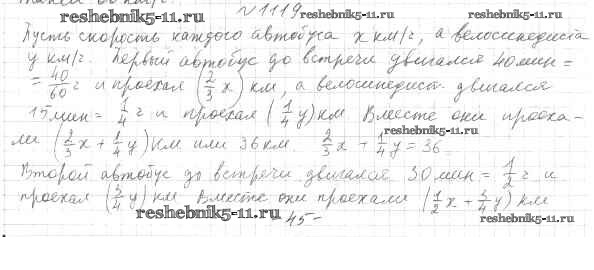 №1119 reshebnik5-11.ru
reshebnik5-11.ru
Пусть скорость каждого автобуса x км/ч, а велосипедиста
y км/ч. Первый автобус до встречи двигался 40 мин =
= 40/60 ч и проехал (2/3 x) км, а велосипедист двигался
15 мин = 1/4 ч и проехал (1/4 y) км Вместе они проеха-
reshebnik5-11.ru
ли (2/3 x + 1/4 y) км или 36 км. 2/3 x + 1/4 y = 36
Второй автобус до встречи двигался 30 мин = 1/2 ч и
проехал (3/4 y) км Вместе они проехали (1/2 x + 3/4 y) км
reshebnik5-11.ru reshebnik5-11.ru
- 45 -